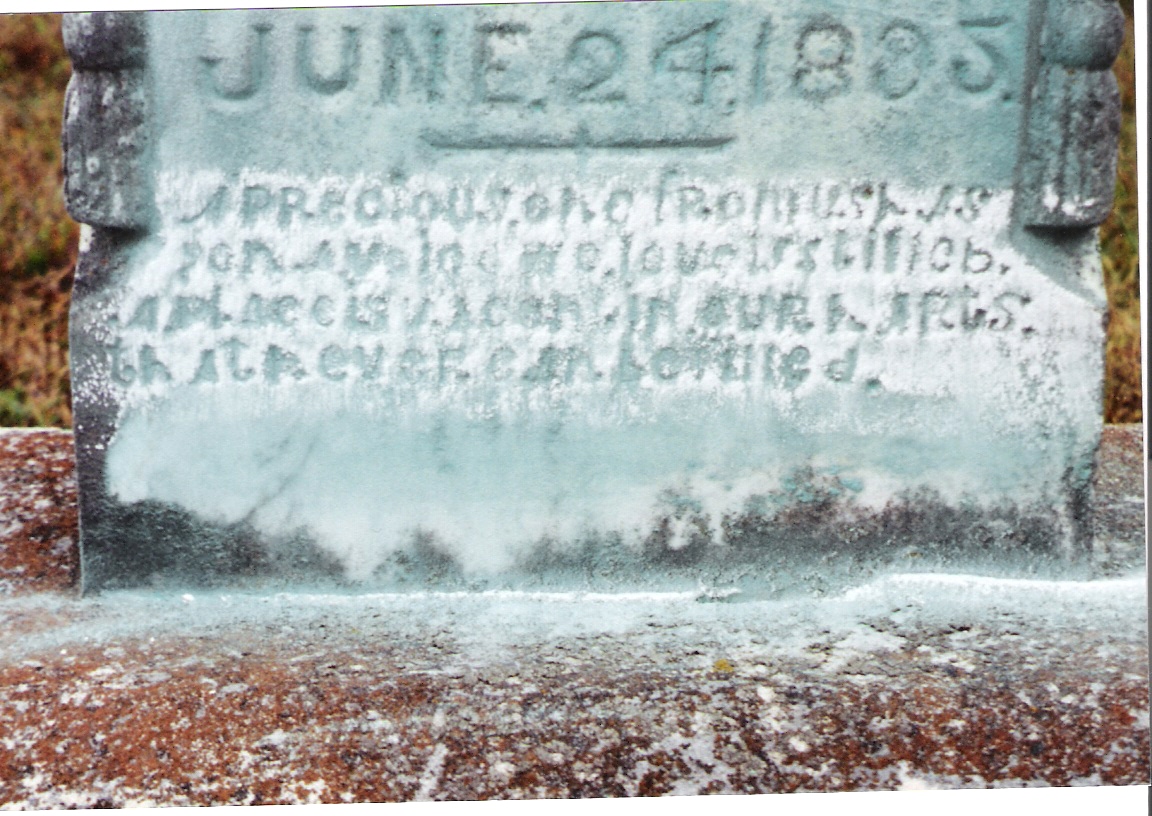 JUNE 24, 1885.
A PRECIOUS one from us has
gon. a voice we love is stilled.
A place is vacant IN OUR hARTS.
that never can be filled.